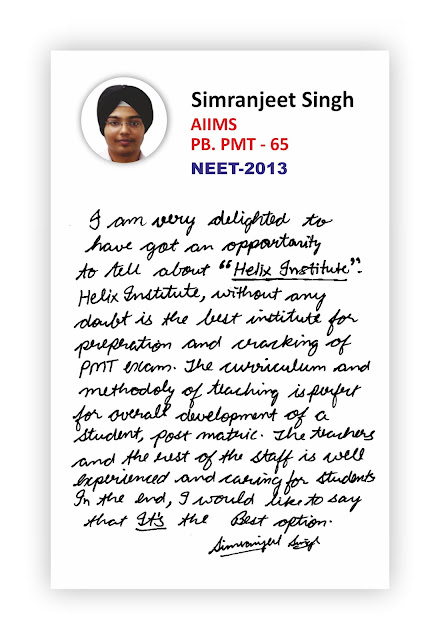 Simranjeet Singh
AIIMS
PB. PMT - 65
NEET-2013
I am very delighted to
have got an opportunity
to tell about "Helix Institute".
Helix Institute, without any
doubt is the best institute for
preperation and cracking of
PMT exam. The curriculum and
methodoly of teaching is perfect
for overall development of a
student, post matric. The teachers
and the rest of the staff is well
experienced and caring for students
In the end, I would like to say
that It's the Best option.
Simranjeet Singh